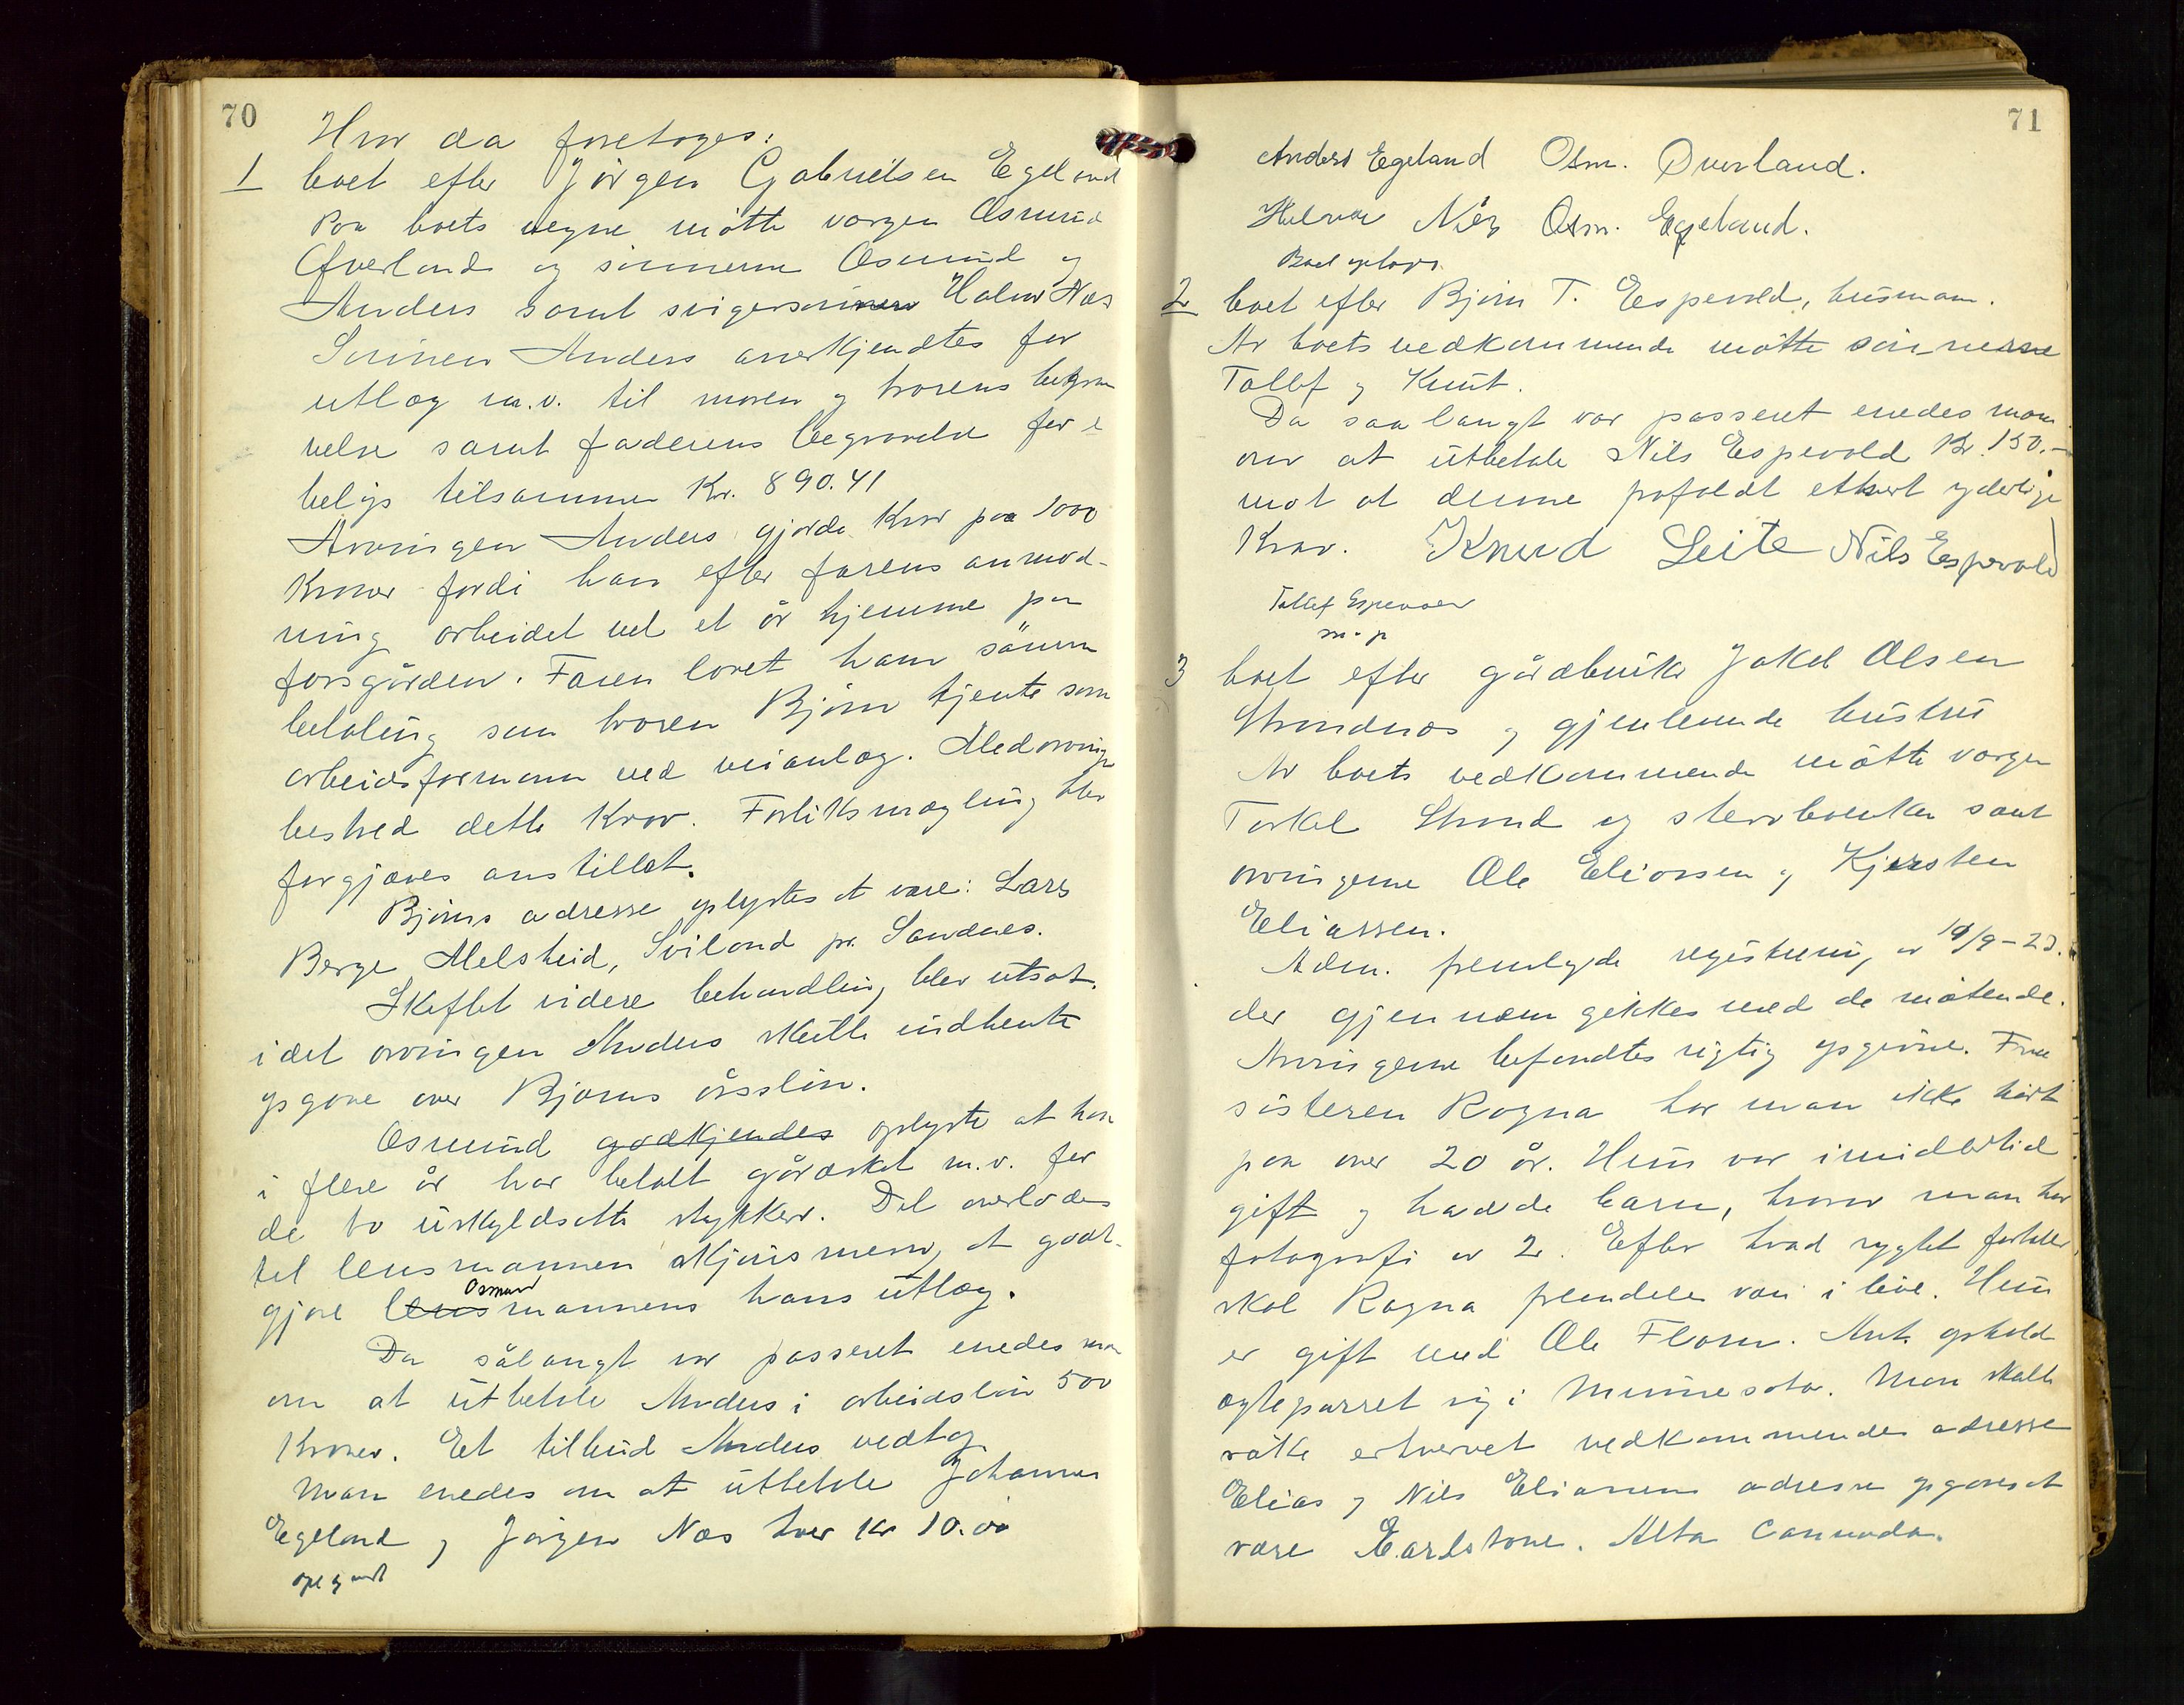 70
Hvor da foretoges:
1 boet efter Jörgen Gabrielsen Egeland
Paa boets vegne mötte vergen Osmund
Øverland og sönnerne Osmund og
Anders samt svigersönnen Halvor Næs
Sönnen Anders anerkjendtes for
utlæg m.v. til moren og brorens begra-
velse samt faderens begravelse for e
beløp tilsammen Kr. 890.41
Arvingen Anders gjorde krav paa 1000
kroner fordi han efter farens anmod-
ning arbeidet vel et år hjemme paa
farsgården. Faren lovet ham samme
betaling som broren Björn tjente som
arbeidsformann ved veianlæg. Medarving
bestred dette krav. Forliksmægling blev
forgjæves anstillet.
Björns adresse oplystes at være: Lars
Berge Melsheid, Sviland pr. Sandnes.
Skiftet videre behandling blev utsat,
idet arvingen Anders skulle indhente
opgave over Bjørns årslön.
Osmund godkjendes oplyste at han
i flere år har betalt gårdskat m.v. for
de to uskyldsatte stykker. Det overlodes
til lensmannen skjönsmessig at godt-
gjøre lensmannens Osmund hans utlæg.
Da sålangt var passeret enedes man
om at utbetale Anders i arbeidslön 500
kroner. Et tilbud Anders vedtog
Man enedes om at utbetale Johannes
Egeland og Jörgen Næs hver kr 10.00
71
Anders Egeland Osm. Øverland.
Halvor Næs Osm. Egeland.
Boet oplöst
2 boet efter Björn T. Espevold, husmann.
Av boets vedkommende mötte sönnerne
Tollef og Knut.
Da saa langt var passeret enedes man
om at utbetale Nils Espevold Kr. 150.-
mot at denne frafaldt ethvert yderlige
Krav. Knud Leite Nils Espevold
Tollef Espevold
m.p
3 boet efter gårdbruker Jakob Olsen
Strandnæs og gjenlevende hustru
Av boets vedkommende mötte vergen
Torkel Strand og stervboenken samt
arvingerne Ole Eliassen og Kjersten
Eliassen.
Adm. fremlagde registrering av 19/9-23.
der gjennem gikkes med de mötende.
Arvingerne befandtes rigtig opgivne. Fra
sösteren Ragna har man ikke hört
paa over 20 år. Hun var imidlertid
gift og hadde barn, hvorav man har
fotografi av 2. Efter hvad rygtet forteller,
skal Ragna fremdeles være i live. Hun
er gift med Ole Flom. Ant. opholder
egteparret sig i Minnesota. Man skulle
söke erhvervet vedkommendes adresse
Elias og Nils Eliassens adresse opgaves at
være Earlstone. Alta Cannada.